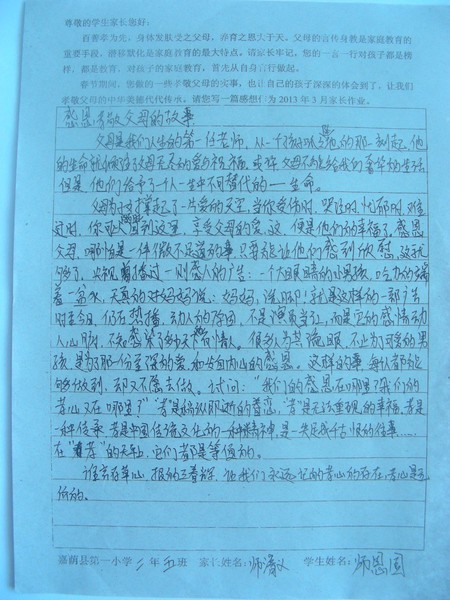 尊敬的学生家长您好：
百善孝为先，身体发肤受之父母，养育之恩大于天。父母的言传身教是家庭教育的
重要手段，潜移默化是家庭教育的最大特点。请家长牢记，您的一言一行对孩子都是榜
样，都是教育，对孩子的家庭教育，首先从自身言行做起。
春节期间，您做的一些孝敬父母的实事，也让自己的孩子深深的体会到了，让我们
孝敬父母的中华美德代代传承，请您写一篇感想作为2013年3月家长作业。
感恩孝敬父母的故事
父母是我们人生的第一任老师，从一个孩子呱呱坠地的那一刻起，他
的生命就倾注了父母无尽的爱与祝福，或许，父母不能给我们奢华的生活
但是，他们给予了一个人一生中不可替代的——生命。
父母为孩子撑起了一片爱的天空，当你受伤时，哭泣时，忧郁时，难
过时，你可以回到这里，享受父母的爱，这，便是他们的幸福了，感恩
父母，哪怕是一件微不足道的事，只要能让他们感到欣慰，这就
够了，央视播过一则感人的广告：一个大眼睛的小男孩，吃力的端
着一盆水，天真的对妈妈说：妈妈，洗脚！就是这样的一部广告
时至今日，仍在热播，动人的原因，不是演员当红，而是它的感情动
人心脾，不知感染了多少有情人，很多人为其流眼，不止为了可爱的男
孩，是为了那一份至深的爱和发自内心的感恩。这样的事，每人都能
够做到，却又不愿去做。试问："我们的感恩在哪里？我们的
孝心又在哪里？"孝"是稍纵即逝的眷恋，"孝"是无法重现的幸福，孝是
一种传承，孝是中国传统文化的一种精神，是一失足成千古恨的往事……
在"孝"的天秤，它们都是等值的。
谁言寸草心，报的三春晖，让我们永远记的孝心的存在，孝心是无
价的。
嘉荫县第一小学二年五班 家长姓名： 学生姓名：师恩国